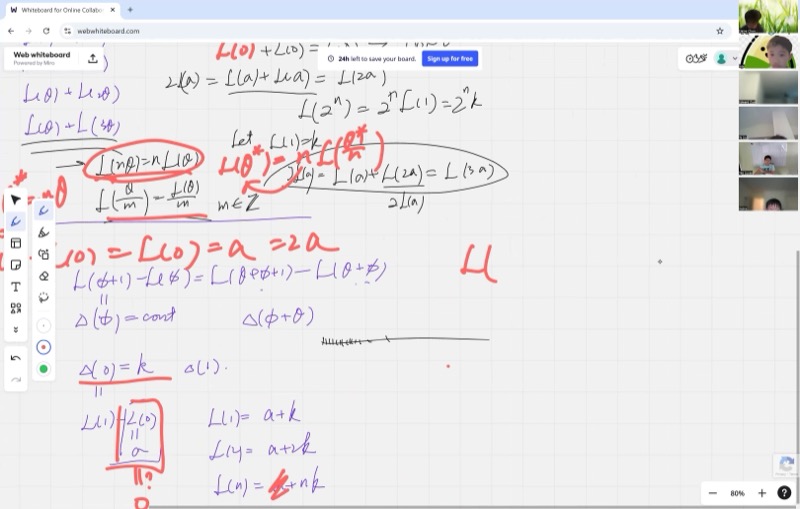 Whiteboard for Online Collabo
webwhiteboard.com
Web whiteboard
Powered by Miro
24h left to save your board.
Sign up for free
L(0) + L(0) =
2L(a) = L(a) + L(a) = L(2a)
L(θ) + L(2θ)
L(2ⁿ) = 2ⁿ L(1) = 2ⁿ k
L(θ) + L(3θ)
Let L(1) = k
→ L(nθ) = n L(θ)
L(θ*) = n L(θ*/n)
L(a) + L(2a) = L(3a)
2L(a)
L(θ/m) = L(θ)/m
m ∈ Z
L(0) = a = 2a
L(ϕ+1) - L(ϕ) = L(θ+ϕ+1) - L(θ+ϕ)
Δ(ϕ) = cont
Δ(ϕ+θ)
Δ(0) = k
Δ(1).
L(1) - L(0)
a
L(1) = a+k
L(n) = +nk
?
0
L(
T
80%
?